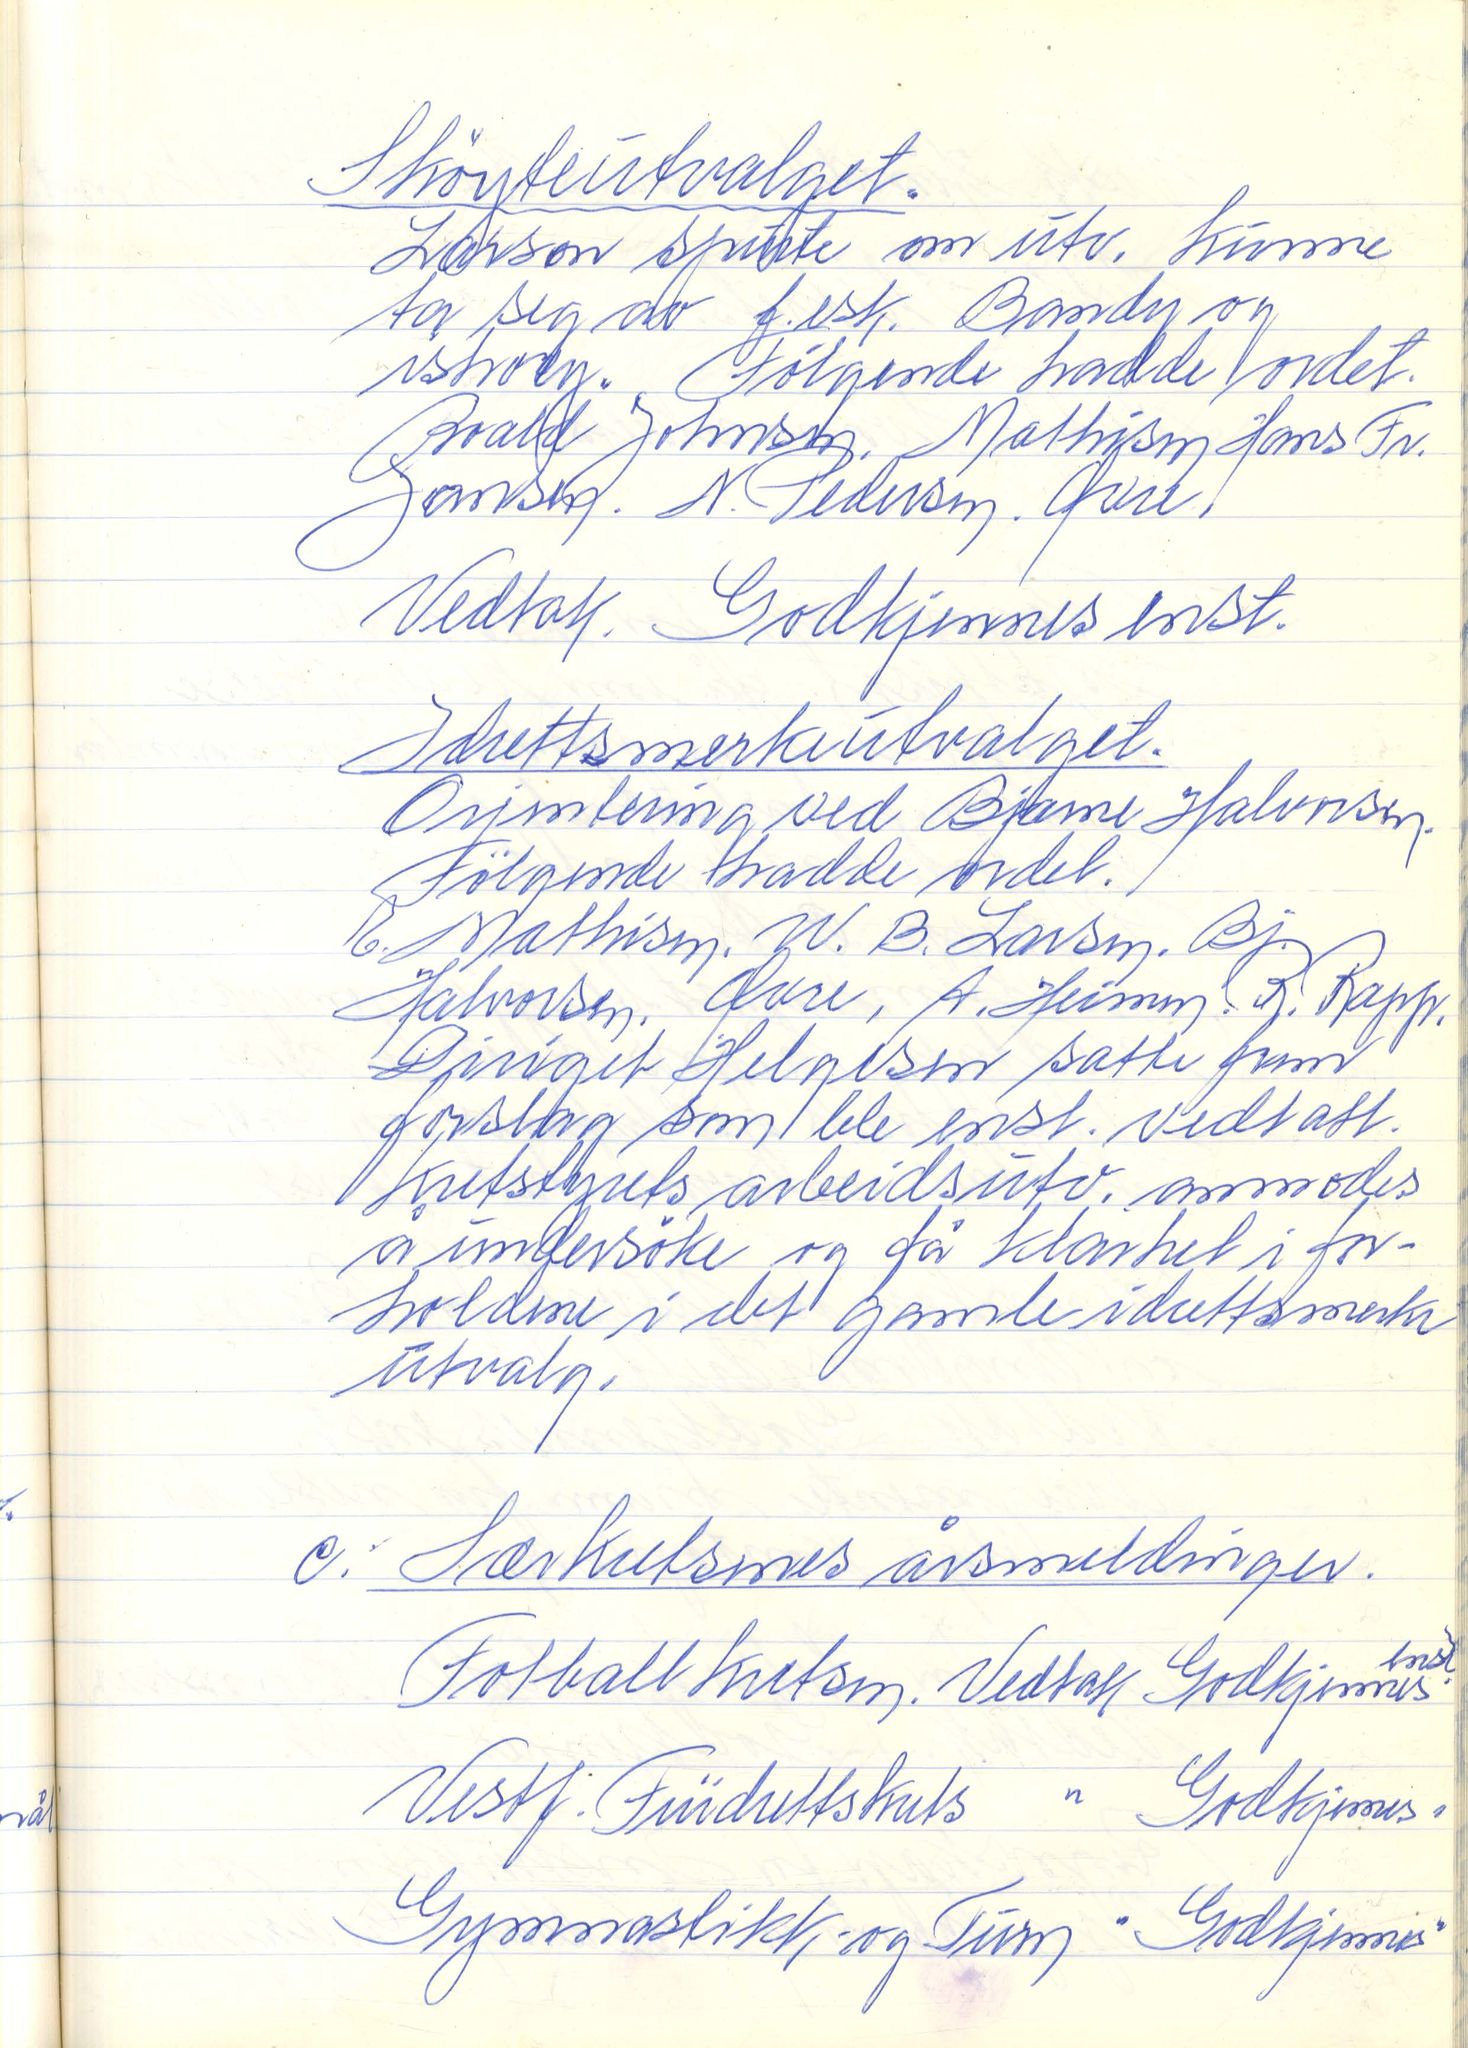 Sköyteutvalget.
Larson spurte om utv. kunne
ta seg av f.eks. Bandy og
ishoky. Følgende hadde ordet.
Roald Johnsen. Mathisen Hans Fr.
Jansen. N. Pedersen. Qvre.
Vedtak. Godkjennes enst.
Idrettsmerkeutvalget.
Orjentering ved Bjarne Halvorsen.
Følgende hadde ordet.
R. Mathisen. W. B. Larsen. Bj.
Halvorsen. Qvre, A. Heimen. R. Rapp.
Diriget Helgesen satte frem
forslag som ble enst. vedtatt.
Kretstyrets arbeidsutv. anmodes
å undersöke og få klarhet i for-
holdene i det gamle idrettsmerke
utvalg.
c. Særkretsenes årsmeldinger.
Fotballkretsen. Vedtak Godkjennes enst.
Vestf. Friidrettskrets " Godkjennes.
Gymnastikk,-og Turn " Godkjennes "